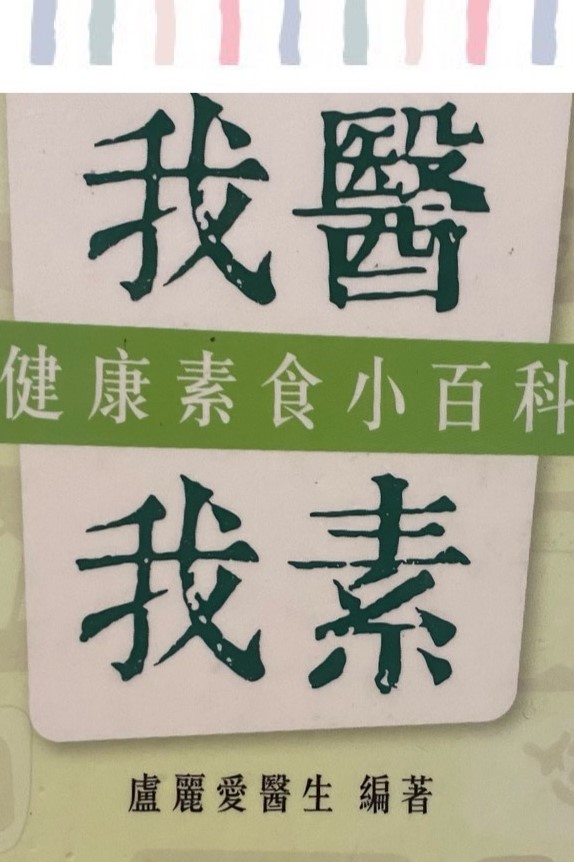 我醫
健康素食小百科
我素
盧麗愛醫生 編著